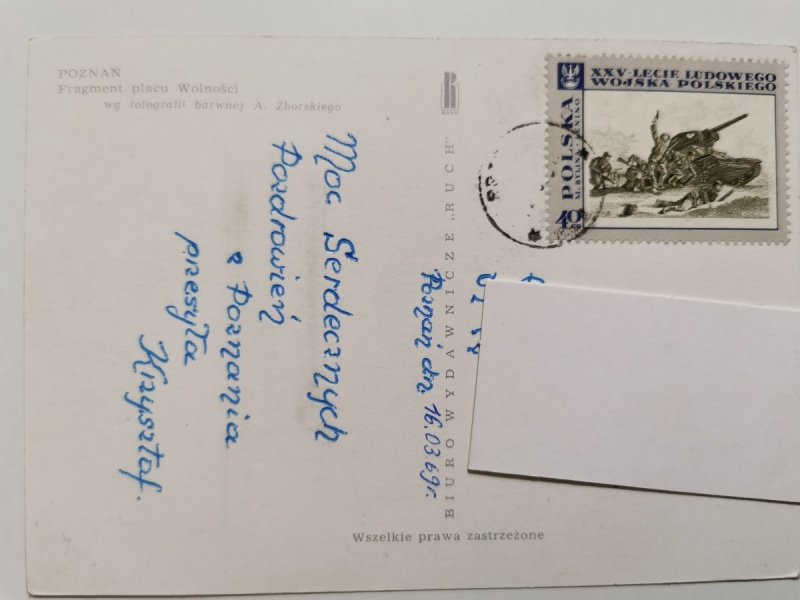 POZNAŃ
Fragment placu Wolności
wg fotografii barwnej A. Zborskiego
RUCH
XXV-LECIE LUDOWEGO
WOJSKA POLSKIEGO
POLSKA
M. BYLINA - LENINO
40 GR
Moc Serdecznych
Pozdrowień
z Poznania
przesyła
Krzysztof.
BIURO WYDAWNICZE „RUCH"
Poznań dn. 16.03.69r.
Wszelkie prawa zastrzeżone